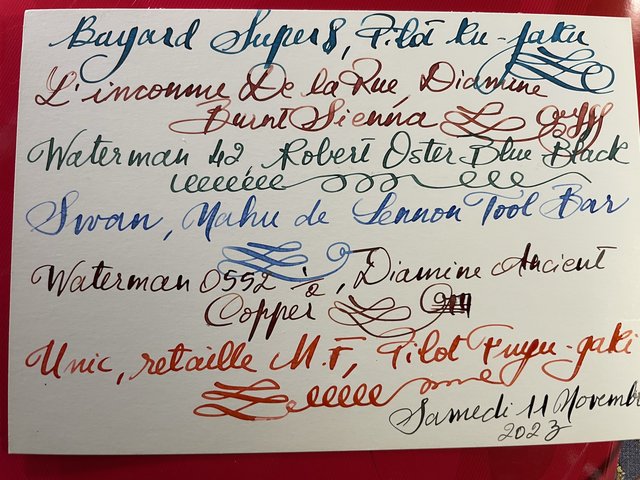 Bayard Super 8, Pilot ku-jaku
L'inconnue De la Rue, Diamine
Burnt Sienna
Waterman 42, Robert Oster Blue Black
Swan, Nahu de Lennon Tool Bar
Waterman 0552 ½, Diamine Ancient
Copper
Unic, retaille M.F, Pilot Fuyu-gaki
Samedi 11 Novemb
2023